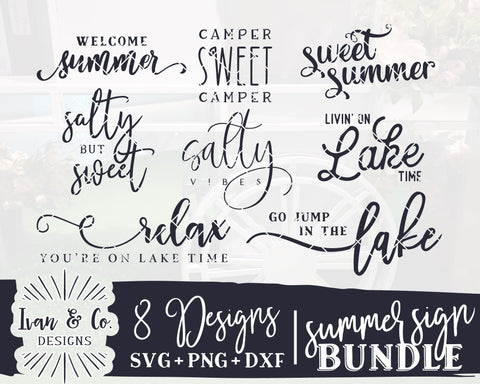 WELCOME
summer
CAMPER
SWEET
CAMPER
sweet
summer
salty
BUT
sweet
salty
VIBES
LIVIN' ON
Lake
TIME
relax
YOU'RE ON LAKE TIME
GO JUMP
IN THE
lake
Ivan & Co.
DESIGNS
8 Designs
SVG + PNG + DXF
summer sign
BUNDLE